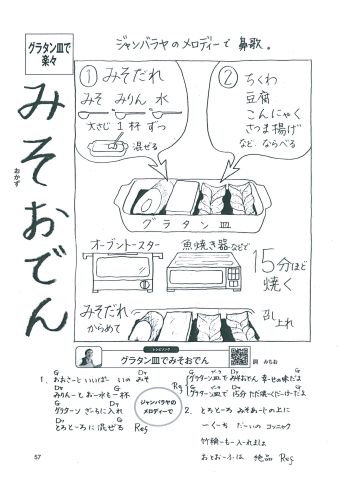 グラタン皿で
楽々
みそおでん
おかず
ジャンバラヤのメロディーで 鼻歌。
① みそだれ
みそ みりん 水
大さじ 1 杯 ずつ
混ぜる
② ちくわ
豆腐
こんにゃく
さつま揚げ
など ならべる
グラタン皿
オーブントースター
魚焼き器などで
15分ほど
焼く
みそだれ
からめて
召し上れ
レシピソング
グラタン皿でみそおでん
詞 みちお
G D7
1. おおさーと いいぱーいの みそ
G
みりんーと おー水もー杯
G D7
グラターン ざーらに入れ
G
とろとろーに 混ぜる Ref
ジャンバラヤの
メロディーで
Ref
グラターン皿で みそおでん 幸せの味だよ
グラターン皿で 15分
2. とろとろー みそあートの上に
コンニャク
竹輪ーもー入れましょ
おとおーふは 絶品 Ref
57